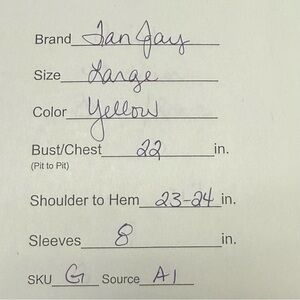 Brand Tan Jay
Size Large
Color Yellow
Bust/Chest 22 in.
(Pit to Pit)
Shoulder to Hem 23-24 in.
Sleeves 8 in.
SKU G Source A1